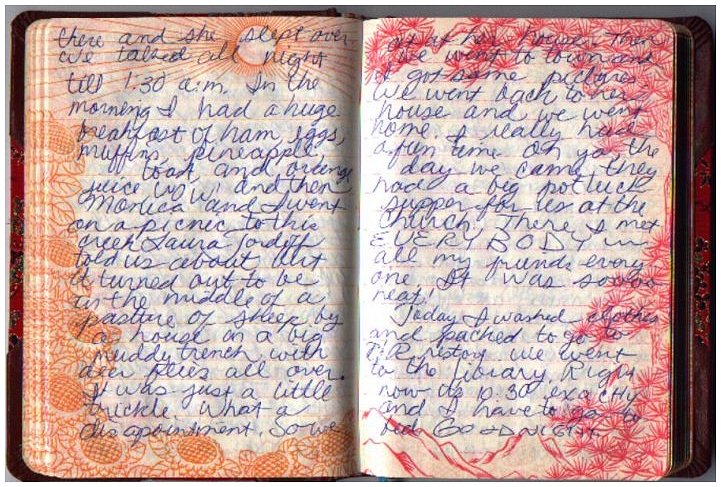 there and she slept over.
We talked all night
till 1:30 a.m. In the
morning I had a huge
breakfast of ham, eggs,
muffins, pineapple,
toast, and orange
juice and then
Monica and I went
on a picnic to this
creek Laura
told us about but
it turned out to be
in the middle of a
pasture of sheep by
a house in a big
muddy trench with
deer all over.
It was just a little
trickle. What a
disapointment. So we
at her house. Then
we went to town and
got some pictures.
We went back to her
house and we went
home. I really had
a fun time. Oh ya the
day we came they
had a big potluck
supper for us at the
church. There I met
EVERYBODY
all my friends every
one. It was sooooo
neat!
Today I washed clothes
and packed to go to
we went
to the library. Right
now its 10:30 exactly
and I have to go to
bed GOODNIGHT